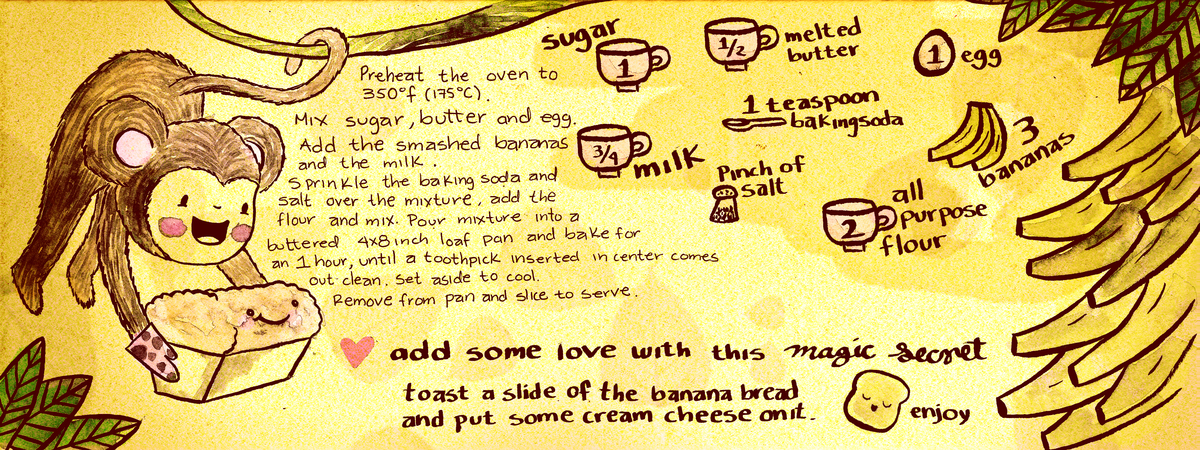 Preheat the oven to
350°f (175°C).
Mix sugar, butter and egg.
Add the smashed bananas
and the milk.
Sprinkle the baking soda and
salt over the mixture, add the
flour and mix. Pour mixture into a
buttered 4x8 inch loaf pan and bake for
an 1 hour, until a toothpick inserted in center comes
out clean. Set aside to cool.
Remove from pan and slice to serve.
sugar
1
1/2
melted
butter
1
egg
1 teaspoon
bakingsoda
3/4
milk
Pinch of
salt
3
bananas
2
all
purpose
flour
add some love with this magic secret
toast a slide of the banana bread
and put some cream cheese on it.
enjoy